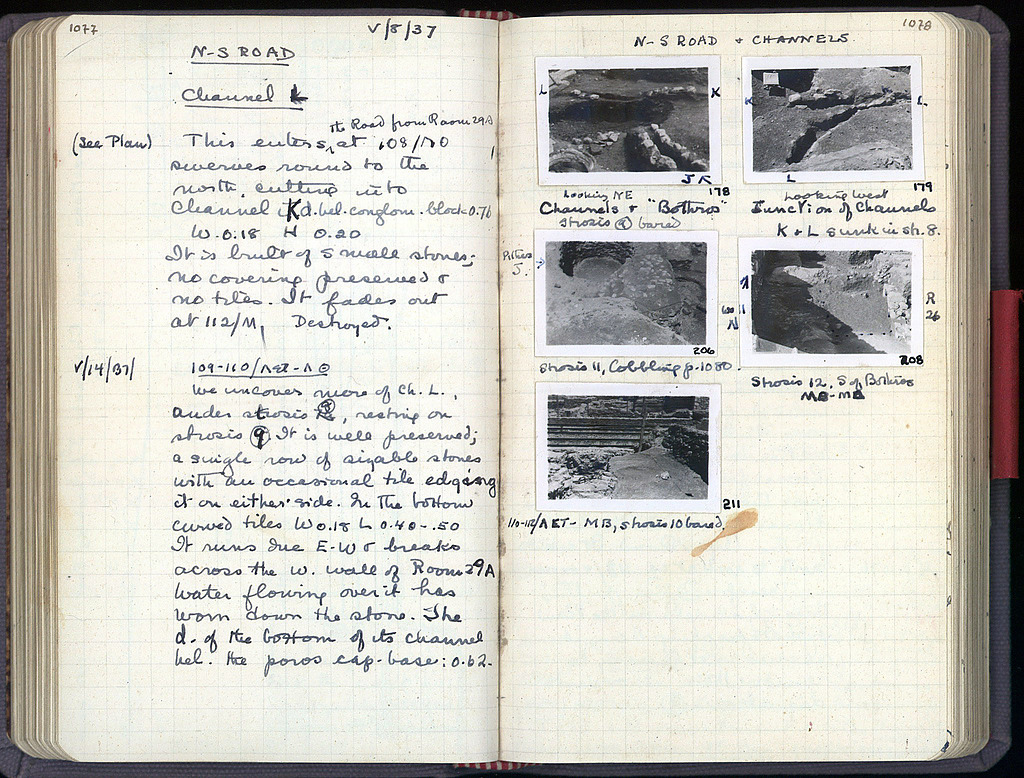 1077
V/8/37
N-S ROAD
Channel L
the Road from Room 29A
(See Plan) This enters at 108/ΠΘ
swerves round to the
north, cutting into
Channel K d. bel. conglom. block 0.76
W. 0.18 H 0.20
It is built of small stones;
no covering preserved &
no tiles. It fades out
at 112/M, Destroyed.
V/14/37/ 109-110/
We uncover more of Ch. L.,
under strosis 8, resting on
strosis 9. It is well preserved;
a single row of sizable stones
with an occasional tile edging
it on either side. In the bottom
curved tiles W 0.18 L 0.40-.50
It runs due E-W & breaks
across the W. wall of Room 29A
Water flowing over it has
worn down the stone. The
d. of the bottom of its channel
bel. the poros cap-base: 0.62-
1078
N-S ROAD & CHANNELS
L K
J K
178
Looking NE
Channels & "Bothros"
Strosis 9 bared
K L
L
179
Looking West
Junction of Channels
K & L sunk in str. 8.
J.
206
Strosis 11, Cobbling p. 1080
R
26
208
Strosis 12, S of Bothros
211
110-112/ΛET-MB, strosis 10 bared.